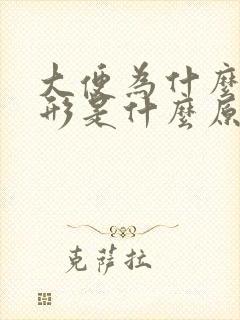 大便為什麼
形是什麼原
克薩拉